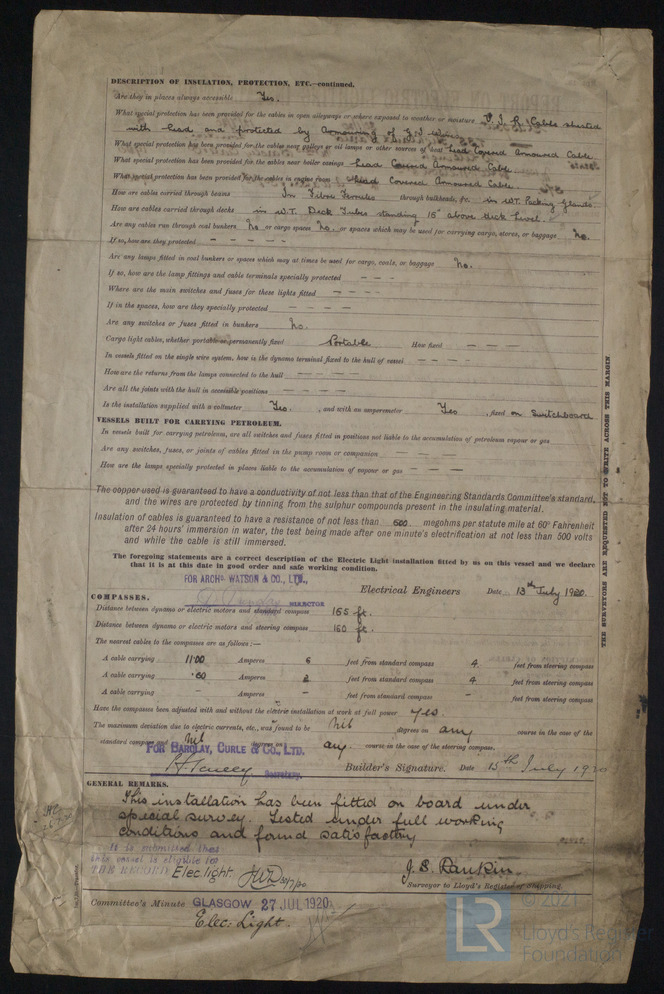 DESCRIPTION OF INSULATION, PROTECTION, ETC.—continued.
Are they in places always accessible Yes.
What special protection has been provided for the cables in open alleyways or where exposed to weather or moisture V.I.R. Cable sheated
with lead and protected by armouring of G.I. Wire
What special protection has been provided for the cables near galleys or oil lamps or other sources of heat Lead Covered Armoured Cable.
What special protection has been provided for the cables near boiler casings Lead Covered Armoured Cable.
What special protection has been provided for the cables in engine room Lead Covered Armoured Cable.
How are cables carried through beams In Fibre Ferrules through bulkheads, &c. in W.T. Packing Glands.
How are cables carried through decks in W.T. Deck Tubes standing 15" above deck level.
Are any cables run through coal bunkers No or cargo spaces No. or spaces which may be used for carrying cargo, stores, or baggage No.
If so, how are they protected — — — — —
Are any lamps fitted in coal bunkers or spaces which may at times be used for cargo, coals, or baggage No.
If so, how are the lamp fittings and cable terminals specially protected — — —
Where are the main switches and fuses for these lights fitted — — — —
If in the spaces, how are they specially protected — — — —
Are any switches or fuses fitted in bunkers No.
Cargo light cables, whether portable or permanently fixed Portable How fixed — — —
In vessels fitted on the single wire system, how is the dynamo terminal fixed to the hull of vessel — — — —
How are the returns from the lamps connected to the hull — — — —
Are all the joints with the hull in accessible positions — — — —
Is the installation supplied with a voltmeter Yes. , and with an amperemeter Yes , fixed on Switchboard
VESSELS BUILT FOR CARRYING PETROLEUM.
In vessels built for carrying petroleum, are all switches and fuses fitted in positions not liable to the accumulation of petroleum vapour or gas
Are any switches, fuses, or joints of cables fitted in the pump room or companion — — —
How are the lamps specially protected in places liable to the accumulation of vapour or gas — — —
The copper used is guaranteed to have a conductivity of not less than that of the Engineering Standards Committee's standard,
and the wires are protected by tinning from the sulphur compounds present in the insulating material.
Insulation of cables is guaranteed to have a resistance of not less than 500 megohms per statute mile at 60° Fahrenheit
after 24 hours' immersion in water, the test being made after one minute's electrification at not less than 500 volts
and while the cable is still immersed.
The foregoing statements are a correct description of the Electric Light installation fitted by us on this vessel and we declare
that it is at this date in good order and safe working condition.
FOR ARCHD WATSON & CO., LTD.,
DIRECTOR
Electrical Engineers Date 13th July 1920.
COMPASSES.
Distance between dynamo or electric motors and standard compass 155 ft.
Distance between dynamo or electric motors and steering compass 150 ft.
The nearest cables to the compasses are as follows:—
A cable carrying 11.00 Amperes 6 feet from standard compass 4. feet from steering compass
A cable carrying .60 Amperes 2 feet from standard compass 4 feet from steering compass
A cable carrying – Amperes – feet from standard compass – feet from steering compass
Have the compasses been adjusted with and without the electric installation at work at full power yes.
The maximum deviation due to electric currents, etc., was found to be Nil degrees on any course in the case of the
standard compass and Nil degrees on any. course in the case of the steering compass.
FOR BARCLAY, CURLE & CO., LTD.
Secretary.
Builder's Signature. Date 15th July 1920
GENERAL REMARKS.
This installation has been fitted on board under
special survey. Tested under full working
conditions and found satisfactory
It is submitted that
this vessel is eligible for
THE RECORD Elec. light. JWD
J. S. Rankin.
Surveyor to Lloyd's Register of Shipping.
Committee's Minute GLASGOW 27 JUL 1920
Elec: Light.
THE SURVEYORS ARE REQUESTED NOT TO WRITE ACROSS THIS MARGIN
© 2021
LR
Lloyd's Register
Foundation